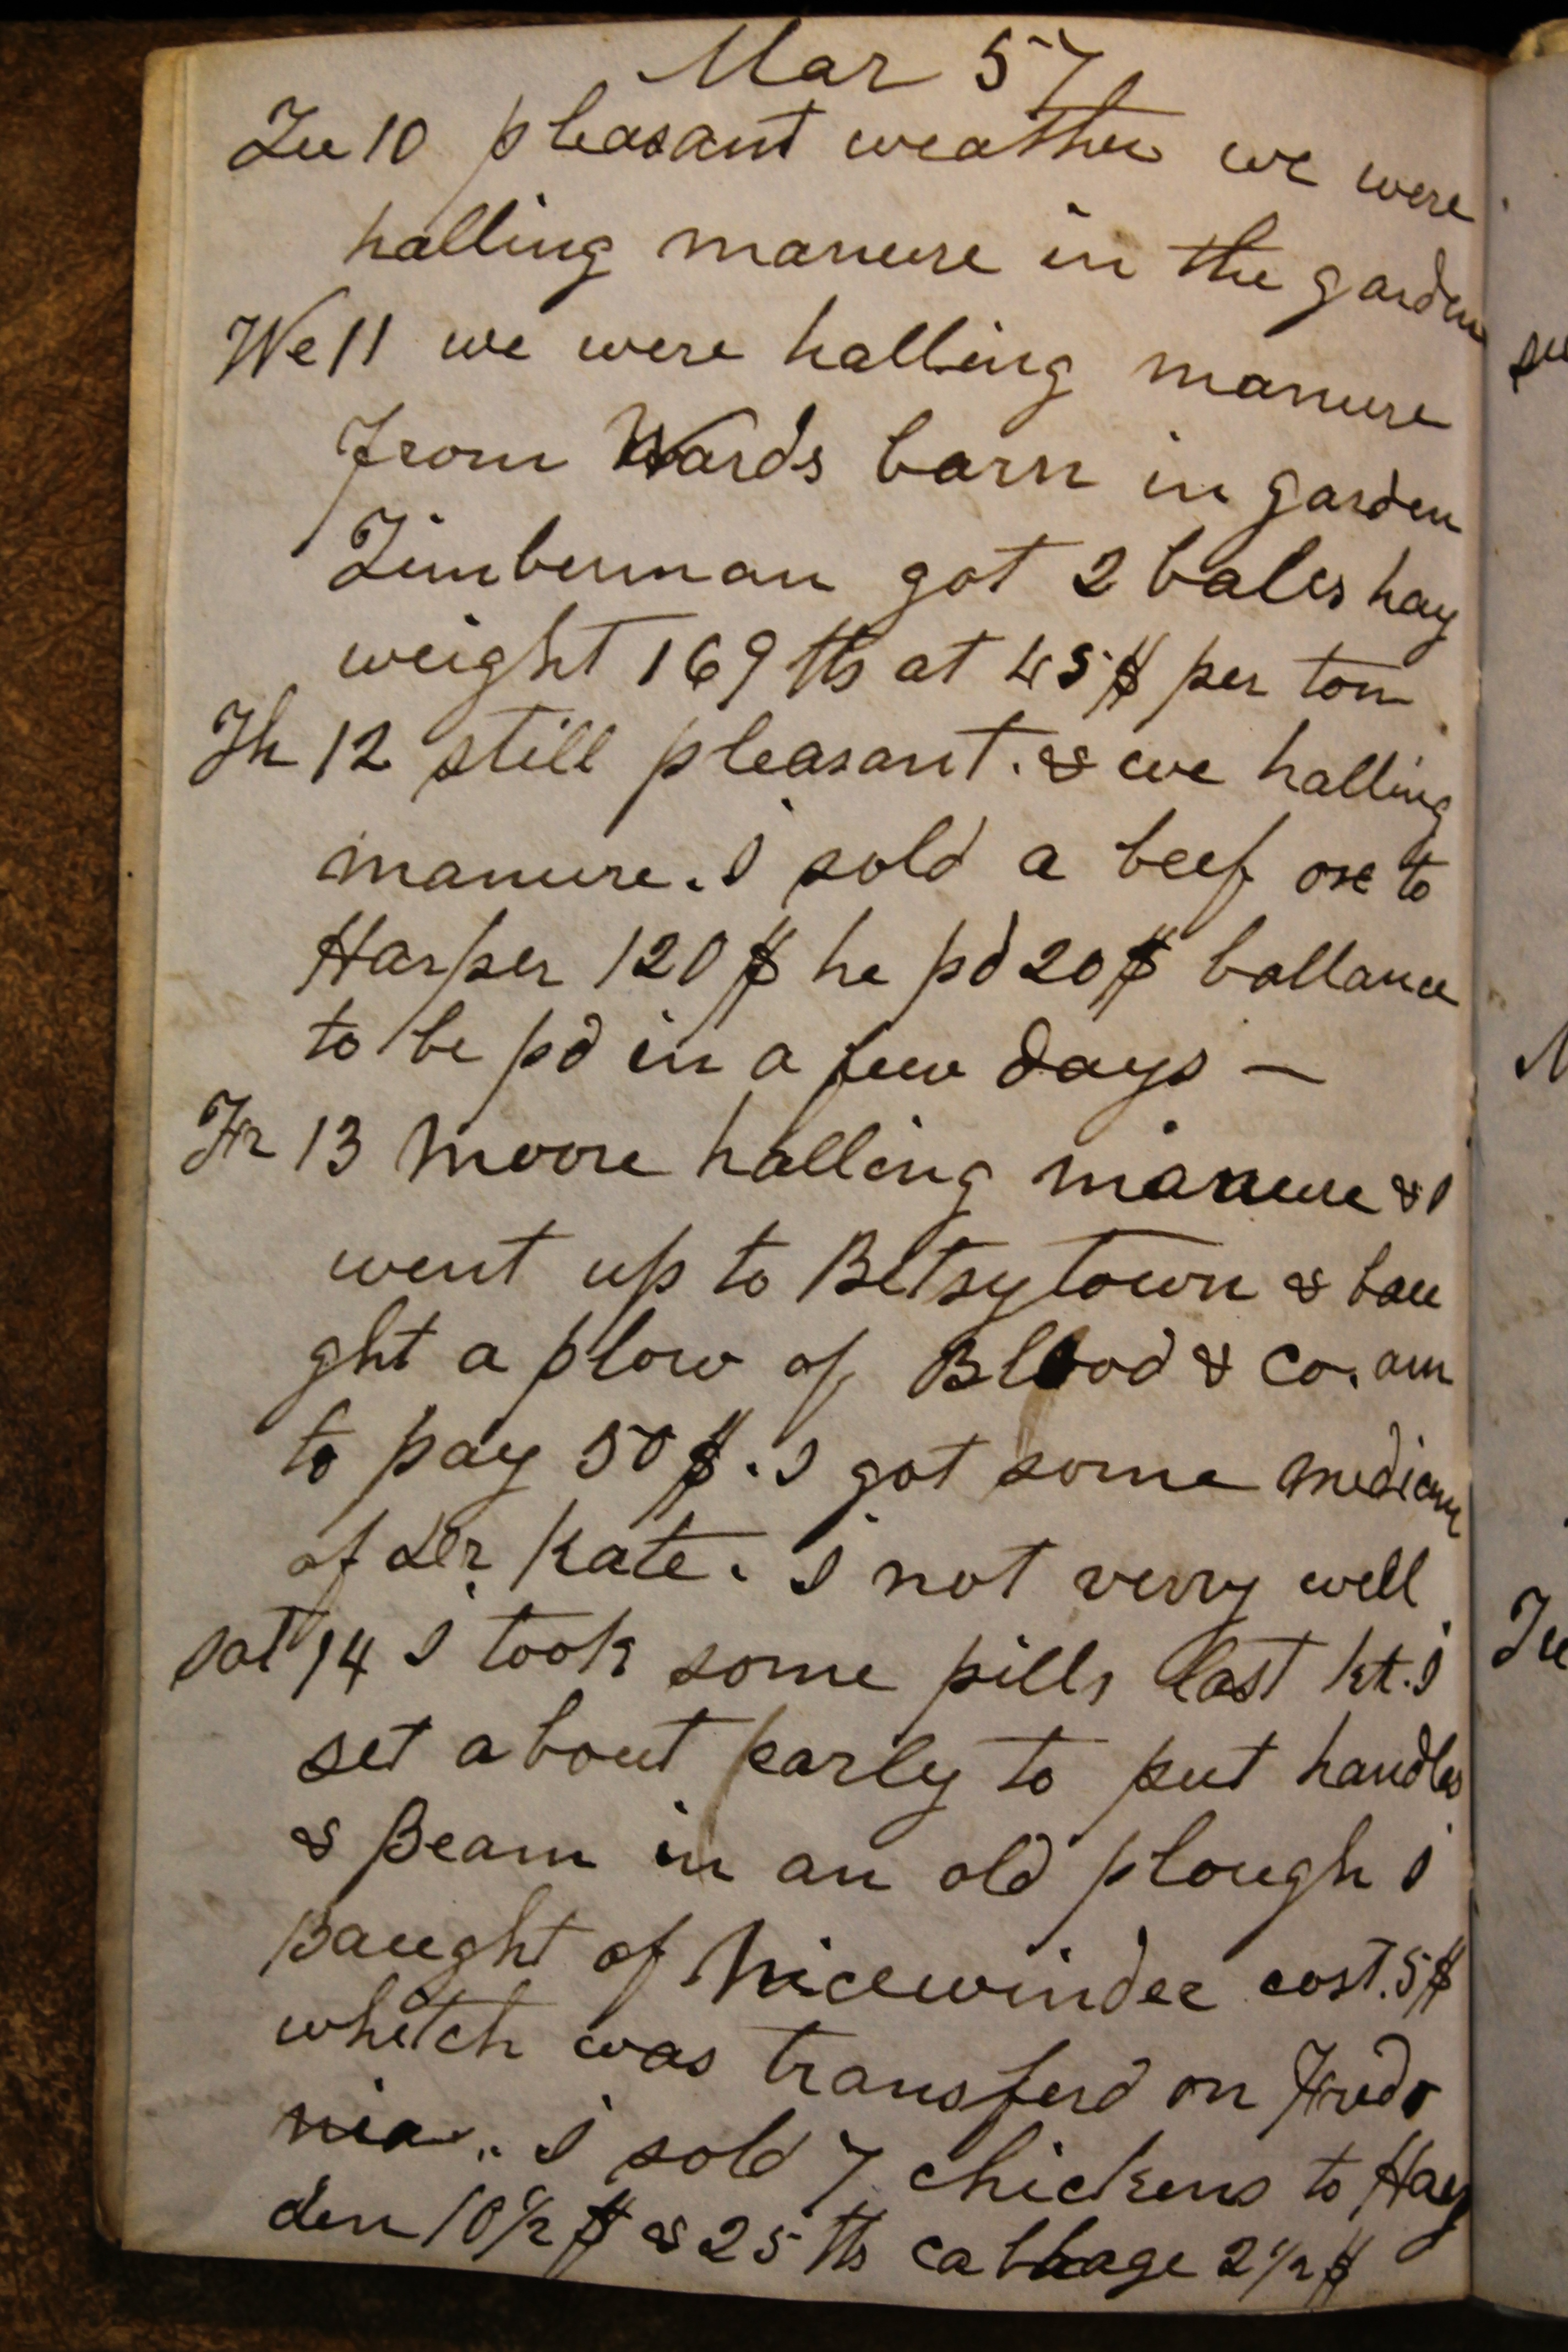 Mar 57
Tu 10 pleasant weather we were
halling manure in the garden
We 11 we were halling manure
from Wards barn in garden
Timberman got 2 bales hay
weight 169 lbs at 45 $ per ton
Th 12 still pleasant. & we halling
manure. I sold a beef oxe to
Harper 120 $ he pd 20 $ ballance
to be pd in a few days —
Fr 13 Moore halling manure & I
went up to Betsytown & bau
ght a plow of Blood & Co. am
to pay 50 $. I got some
of Dr Kate. I not verry well
Sat 14 I took some pills last kt. I
set about early to put handles
& Beam in an old plough I
Baught of Nicewinder cost. 5 $
whitch was transferd on Fredo
nia. I sold 7 chickens to Hay
den 10 1/2 $ & 25 lbs cabbage 2 1/2 $
Tu